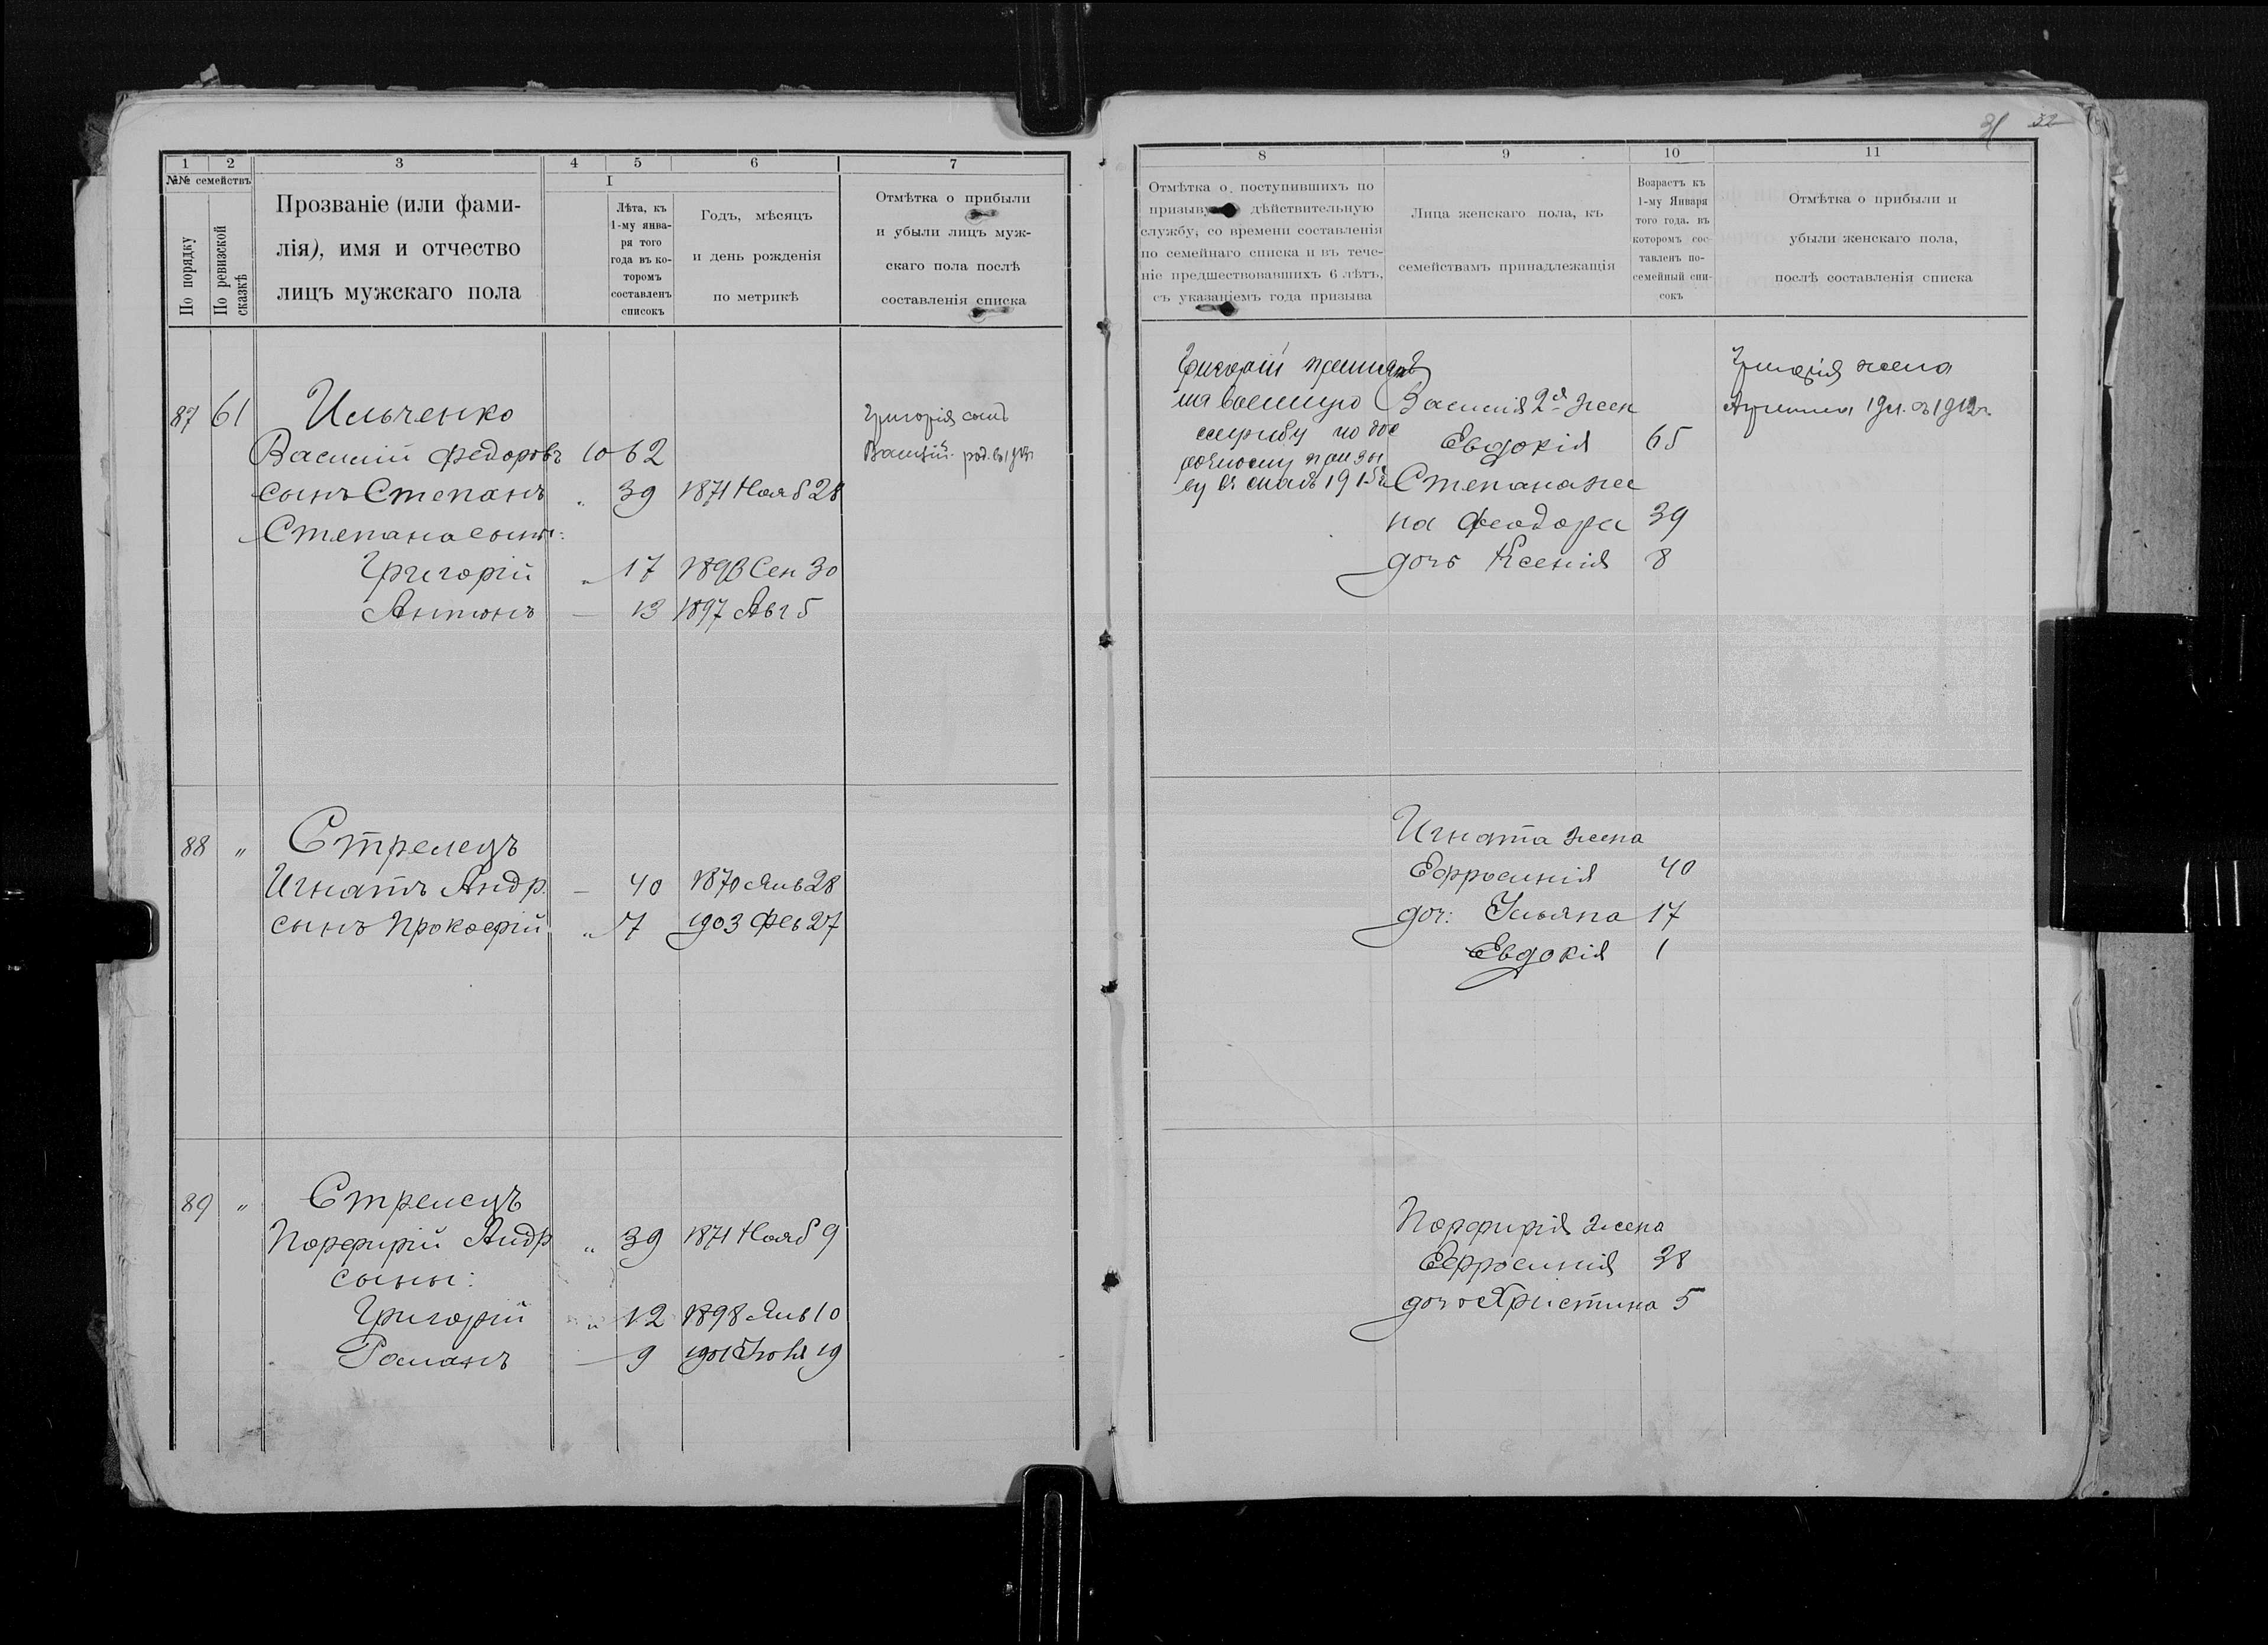 31 32
1 2 3 4 5 6 7
№№ семействъ
По порядку
По ревизской сказкѣ
Прозваніе (или фами-
лія), имя и отчество
лицъ мужскаго пола
I
Лѣта, къ
1-му янва-
ря того
года въ ко-
торомъ
составленъ
списокъ
Годъ, мѣсяцъ
и день рожденія
по метрикѣ
Отмѣтка о прибыли
и убыли лицъ муж-
скаго пола послѣ
составленія списка
87 61 Ильченко
Василій Федоровъ 10 62
сынъ Степанъ „ 39 1871 Нояб 28
Степана сыны:
Григорій „ 17 1893 Сен 30
Антонъ — 13 1897 Авг 5
Григорія сынъ
Василій род. въ
88 „ Стрелецъ
Игнатъ Андр. — 40 1870 Янв 28
сынъ Прокофій „ 7 1903 Фев 27
89 „ Стрелецъ
Порфирій Андр „ 39 1871 Нояб 9
сыны:
Григорій „ 12 1898 Янв 10
Романъ — 9 1901 19
8 9 10 11
Отмѣтка о поступившихъ по
призыву дѣйствительную
службу, со времени составленія
по семейнаго списка и въ тече-
ніе предшествовавшихъ 6 лѣтъ,
съ указаніемъ года призыва
Лица женскаго пола, къ
семействамъ принадлежащія
Возрастъ къ
1-му Января
того года. въ
которомъ сос-
тавленъ по-
семейный спи-
сокъ
Отмѣтка о прибыли и
убыли женскаго пола,
послѣ составленія списка
Григорій принятъ
на военную
службу по дос
рочному призы
ву въ 191
Василія 2я жен
Евдокія 65
Степана же
на Феодора 39
дочь Ксенія 8
Григорія жена
19 л. въ 1912г.
Игната жена
Ефросинія 40
доч: Ульяна 17
Евдокія 1
Порфирія жена
Ефросинія 38
дочь Христина 5